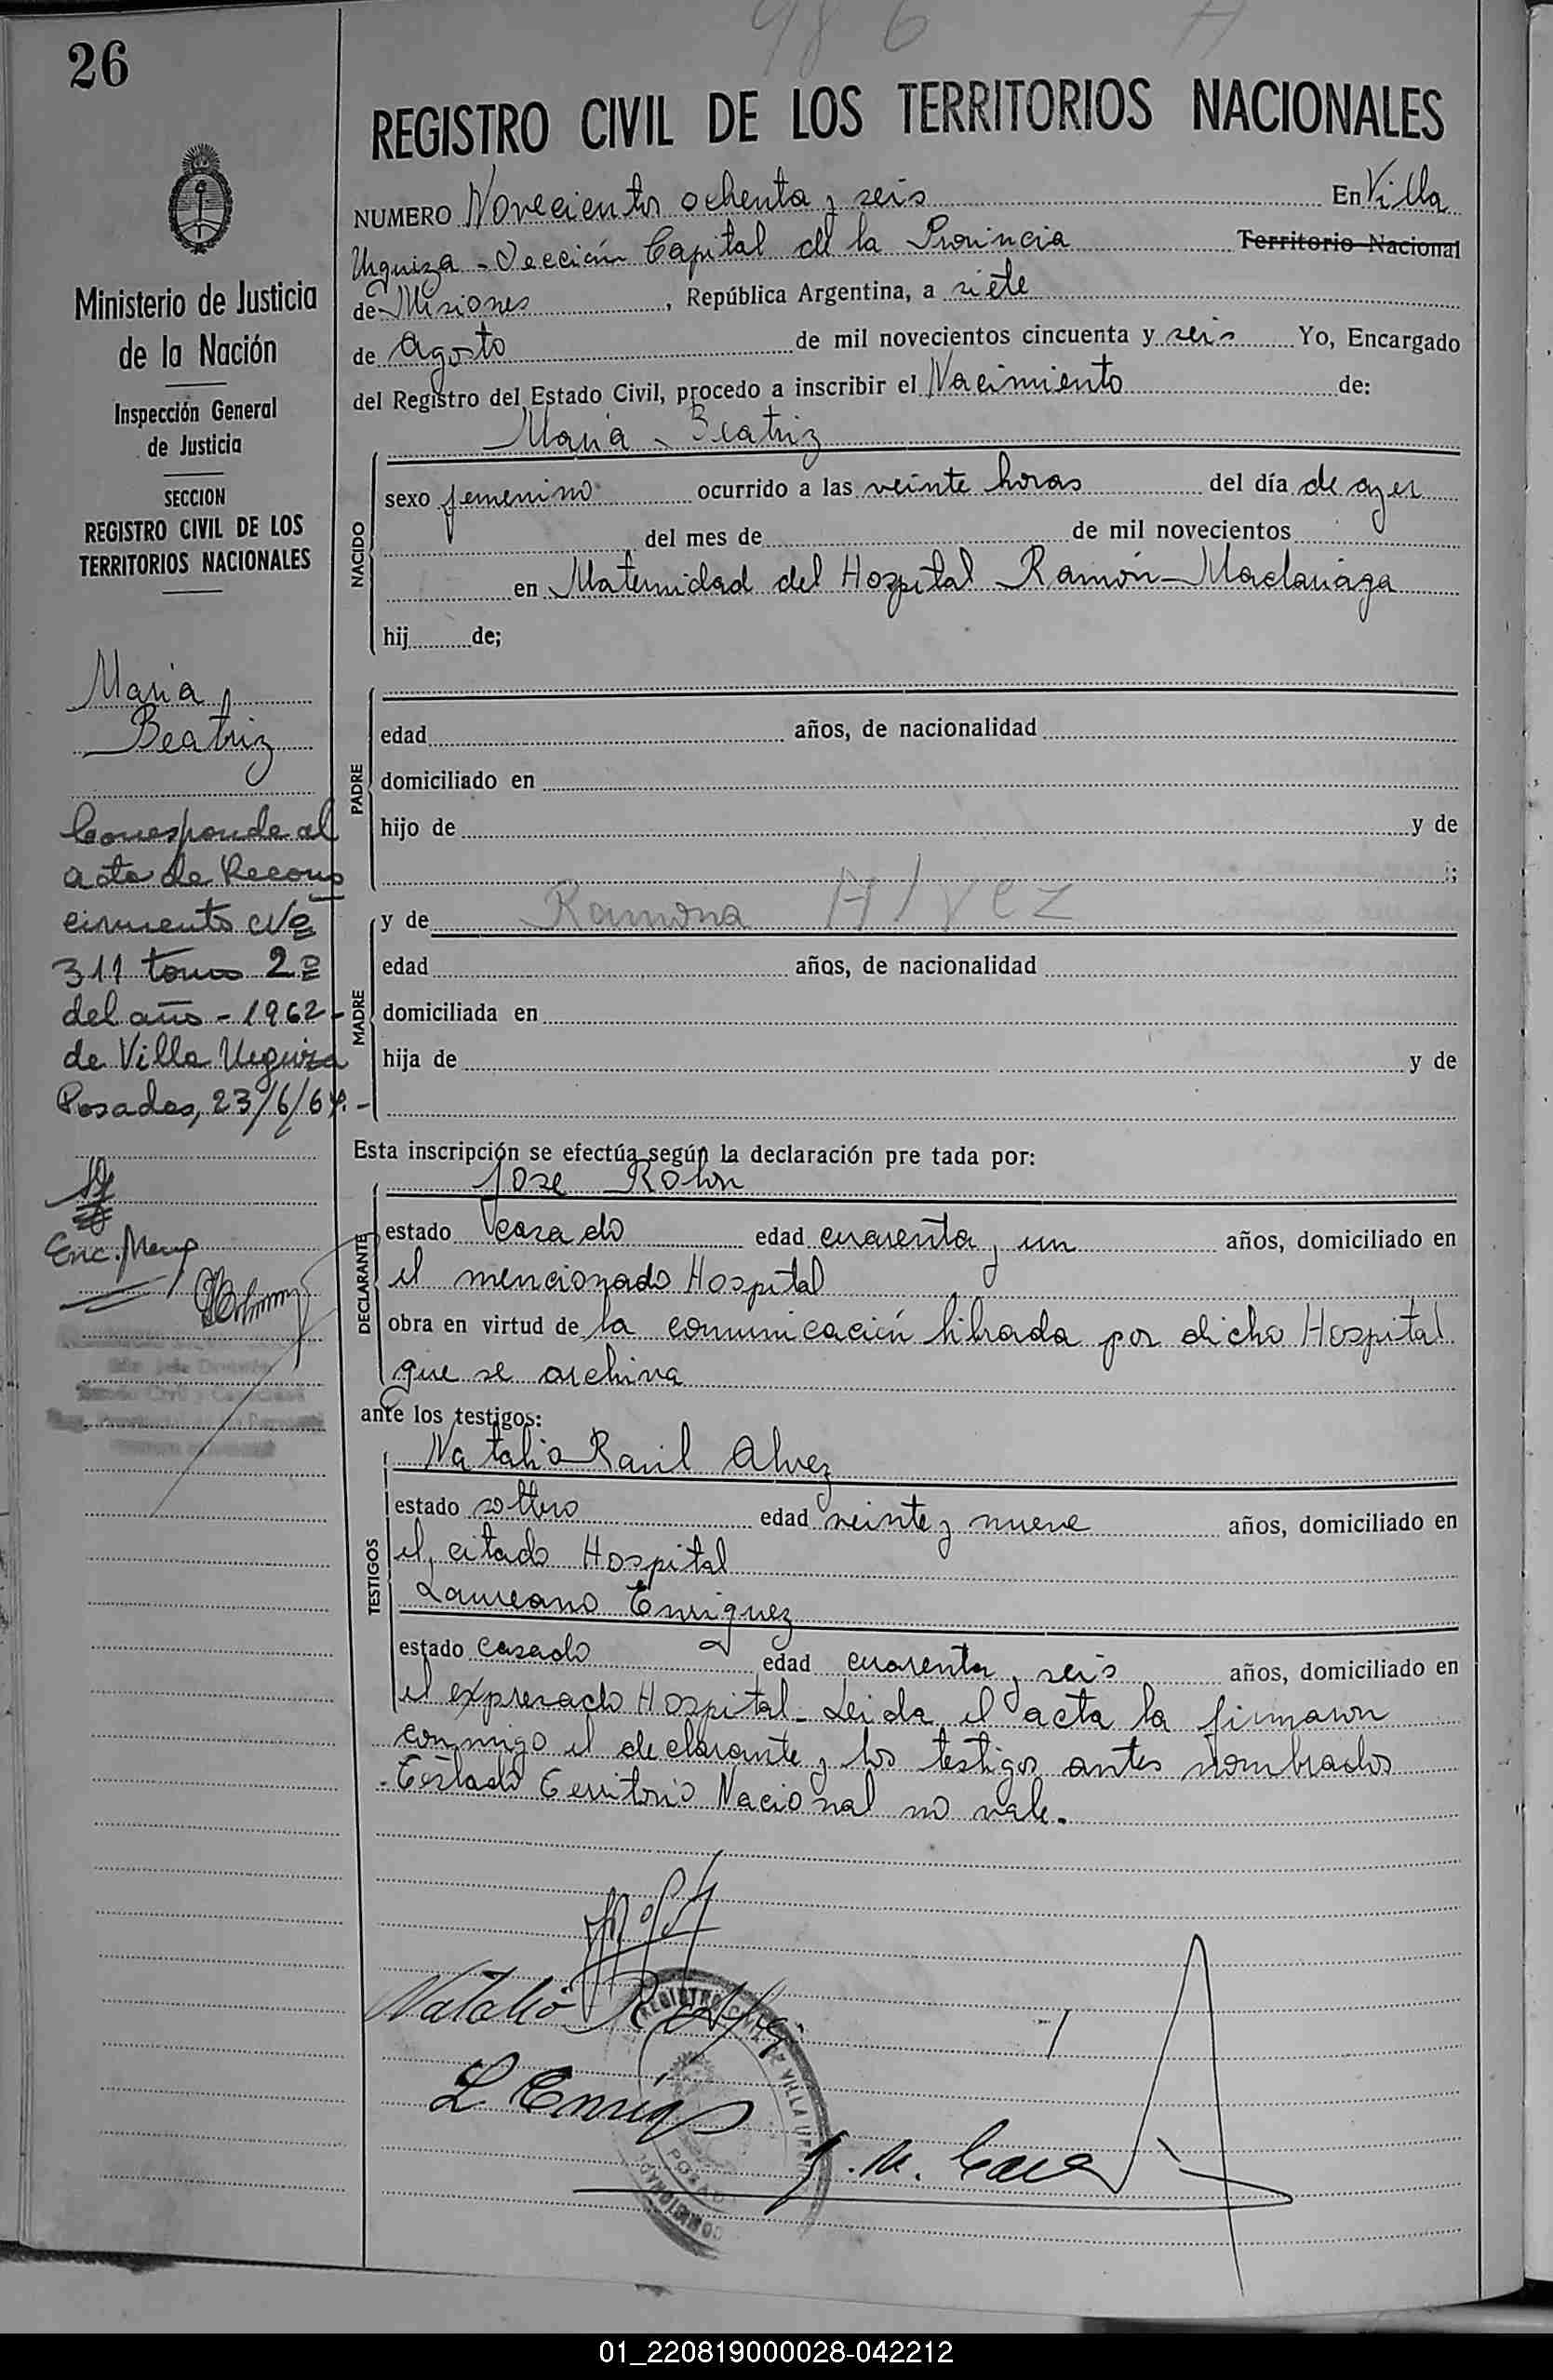 986
26
REGISTRO CIVIL DE LOS TERRITORIOS NACIONALES
NUMERO Novecientos ochenta y seis En Villa
Urquiza - Sección Capital de la Provincia Territorio Nacional
de Misiones, República Argentina, a siete
de Agosto de mil novecientos cincuenta y seis Yo, Encargado
del Registro del Estado Civil, procedo a inscribir el Nacimiento de:
Maria - Beatriz
NACIDO
sexo femenino ocurrido a las veinte horas del día de ayer
del mes de de mil novecientos
en Maternidad del Hospital Ramón Madariaga
hij de;
PADRE
edad años, de nacionalidad
domiciliado en
hijo de y de
;
MADRE
y de Ramona Alvez
edad años, de nacionalidad
domiciliada en
hija de y de
Esta inscripción se efectúa según la declaración pre tada por:
DECLARANTE
Jose Rolon
estado casado edad cuarenta y un años, domiciliado en
el mencionado Hospital
obra en virtud de la comunicación librada por dicho Hospital
que se archiva
ante los testigos:
TESTIGOS
Natalio Raul Alvez
estado soltero edad veinte y nueve años, domiciliado en
el citado Hospital
Laureano Enriquez
estado casado edad cuarenta y seis años, domiciliado en
el expresado Hospital - Leida el acta la firmaron
conmigo el declarante y los testigos antes nombrados
- Testado Territorio Nacional no vale.
Natalio R
L Enriq
REGISTRO CIVIL VILLA
POSAD
Ministerio de Justicia
de la Nación
Inspección General
de Justicia
SECCION
REGISTRO CIVIL DE LOS
TERRITORIOS NACIONALES
Maria
Beatriz
Corresponde al
acta de Recono
cimiento Nº
311 tomo 2º
del año - 1962 -
de Villa Urquiza
Posadas, 23/6/64. -
01_220819000028-042212